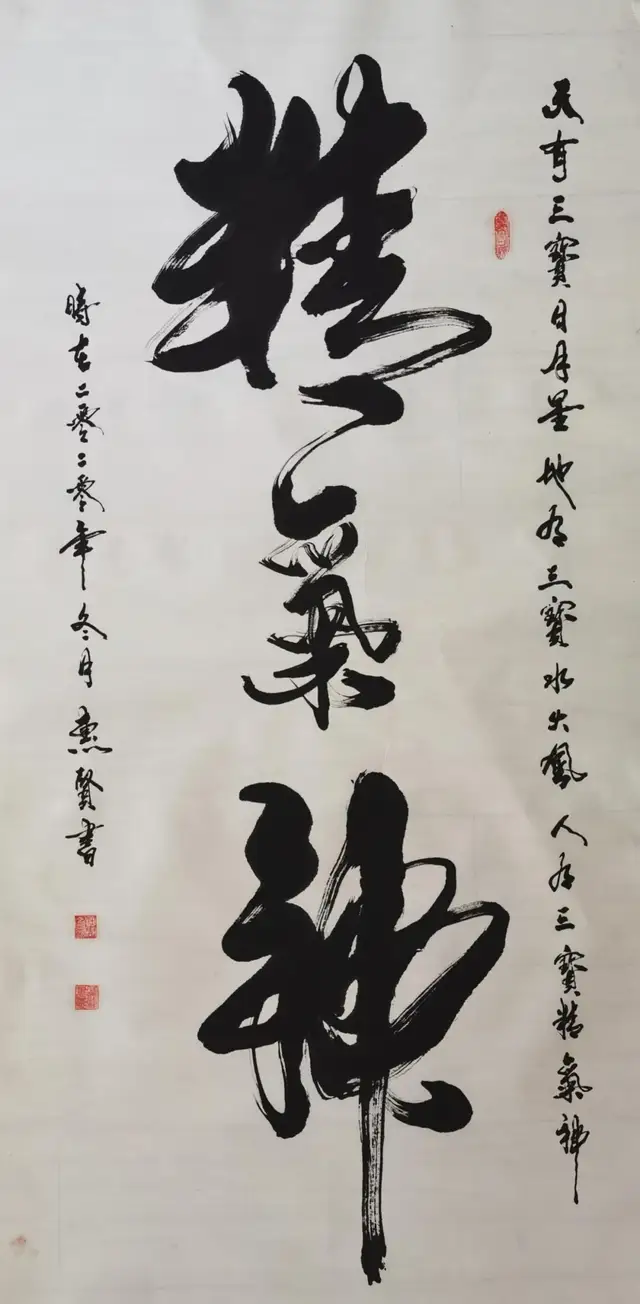 天有三寶日月星地有三寶水火風人有三寶精氣神
精氣神
時在二零二零年冬月惠賢書